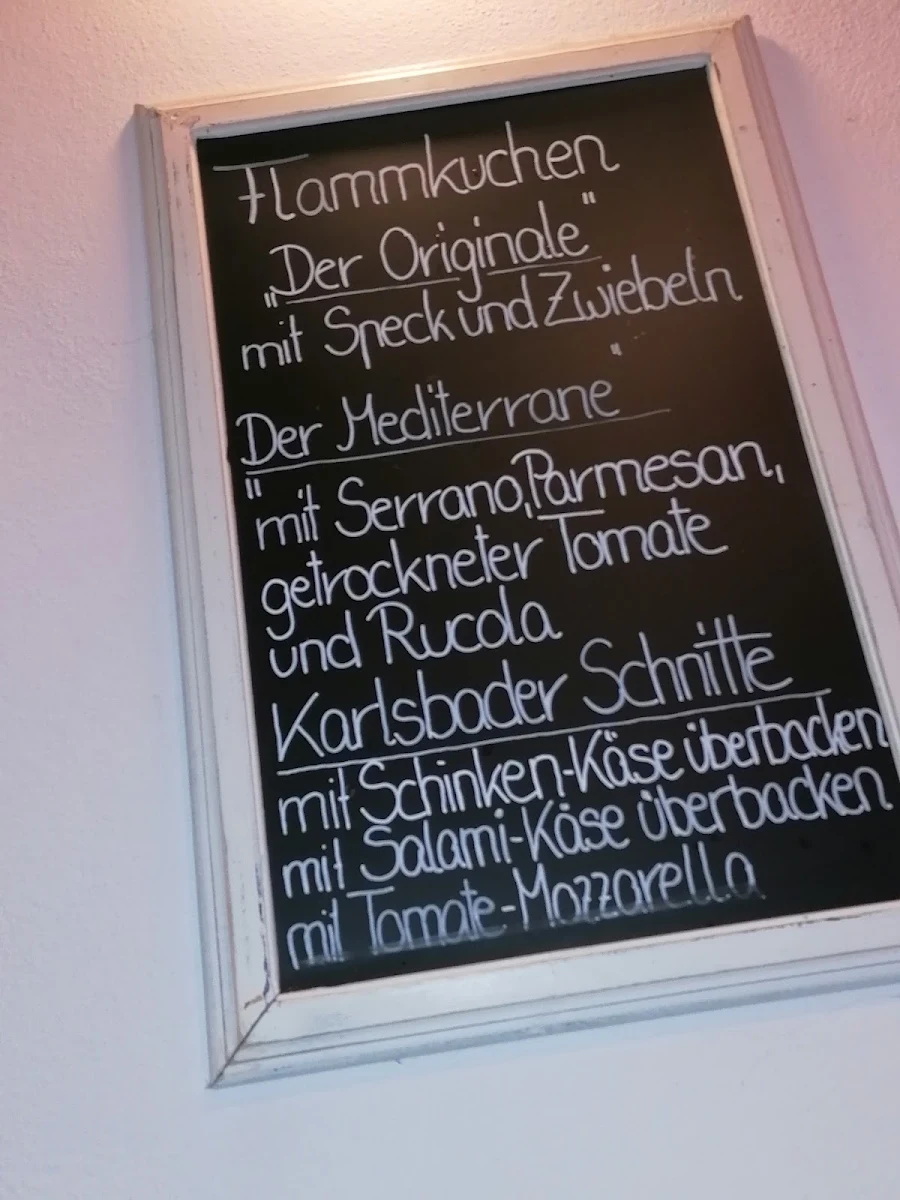 Flammkuchen
"Der Originale"
mit Speck und Zwiebeln
"Der Mediterrane"
mit Serrano, Parmesan,
getrockneter Tomate
und Rucola
Karlsbader Schnitte
mit Schinken-Käse überbacken
mit Salami-Käse überbacken
mit Tomate-Mozzarella